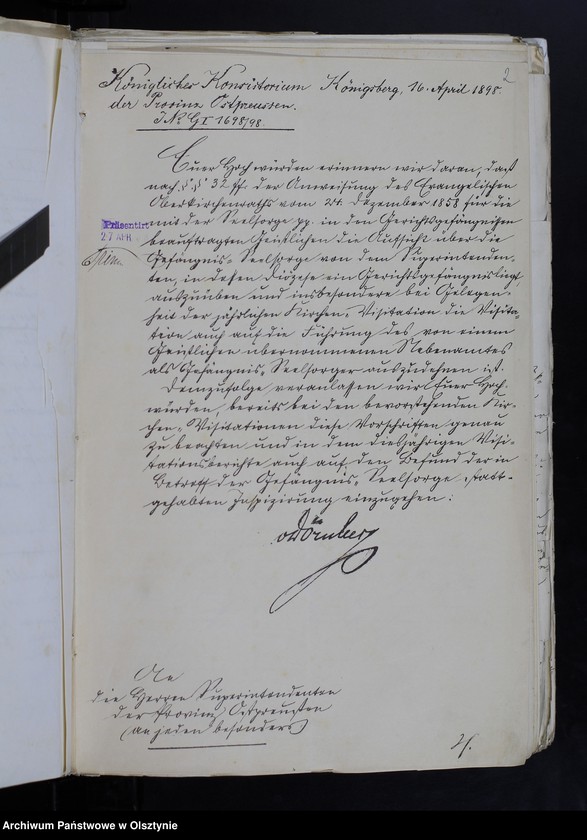 2
Königliches Konsistorium Königsberg, 16. April 1898.
der Provinz Ostpreussen.
J. No GI 1698/98.
Euer Hochwürden erinnern wir daran, daß
nach §§ 32 ff. der Anweisung des Evangelischen
Oberkirchenraths vom 24. Dezember 1858 für die
mit der Seelsorge pp. in den Gerichtsgefängnissen
beauftragten Geistlichen die Aufsicht über die
Gefängniß-Seelsorge von dem Superintenden-
ten, in dessen Diözese ein Gerichtsgefängniß liegt,
auszuüben und insbesondere bei Gelegen-
heit der jährlichen Kirchen-Visitation die Visita-
tion auch auf die Führung des von einem
Geistlichen übernommenen Nebenamtes
als Gefängniß-Seelsorger auszudehnen ist.
Demzufolge veranlassen wir Euer Hoch-
würden, bereits bei den bevorstehenden Kir-
chen-Visitationen diese Vorschriften genau
zu beachten und in dem diesjährigen Visi-
tationsberichte auch auf den Befund der in
Betreff der Gefängniß-Seelsorge statt-
gehabten Inspizirung einzugehen.
Präsentirt
27 APR
vDörnberg
An
die Herren Superintendenten
der Provinz Ostpreußen
(an jeden besonders)
Archiwum Państwowe w Olsztynie